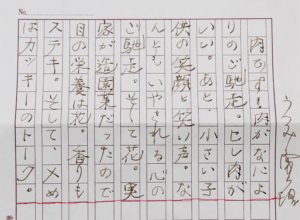 No.
うつみ宮土理
肉です!肉がなによ
りのご馳走。ヒレ肉が
いい。あと、小さい子
供の笑顔と笑い声。な
んともいやされる心の
ご馳走。そして花。実
家が造園業だったので
目の栄養は花。香りも
ステキ。そして、〆め
はカッキーのトーク。